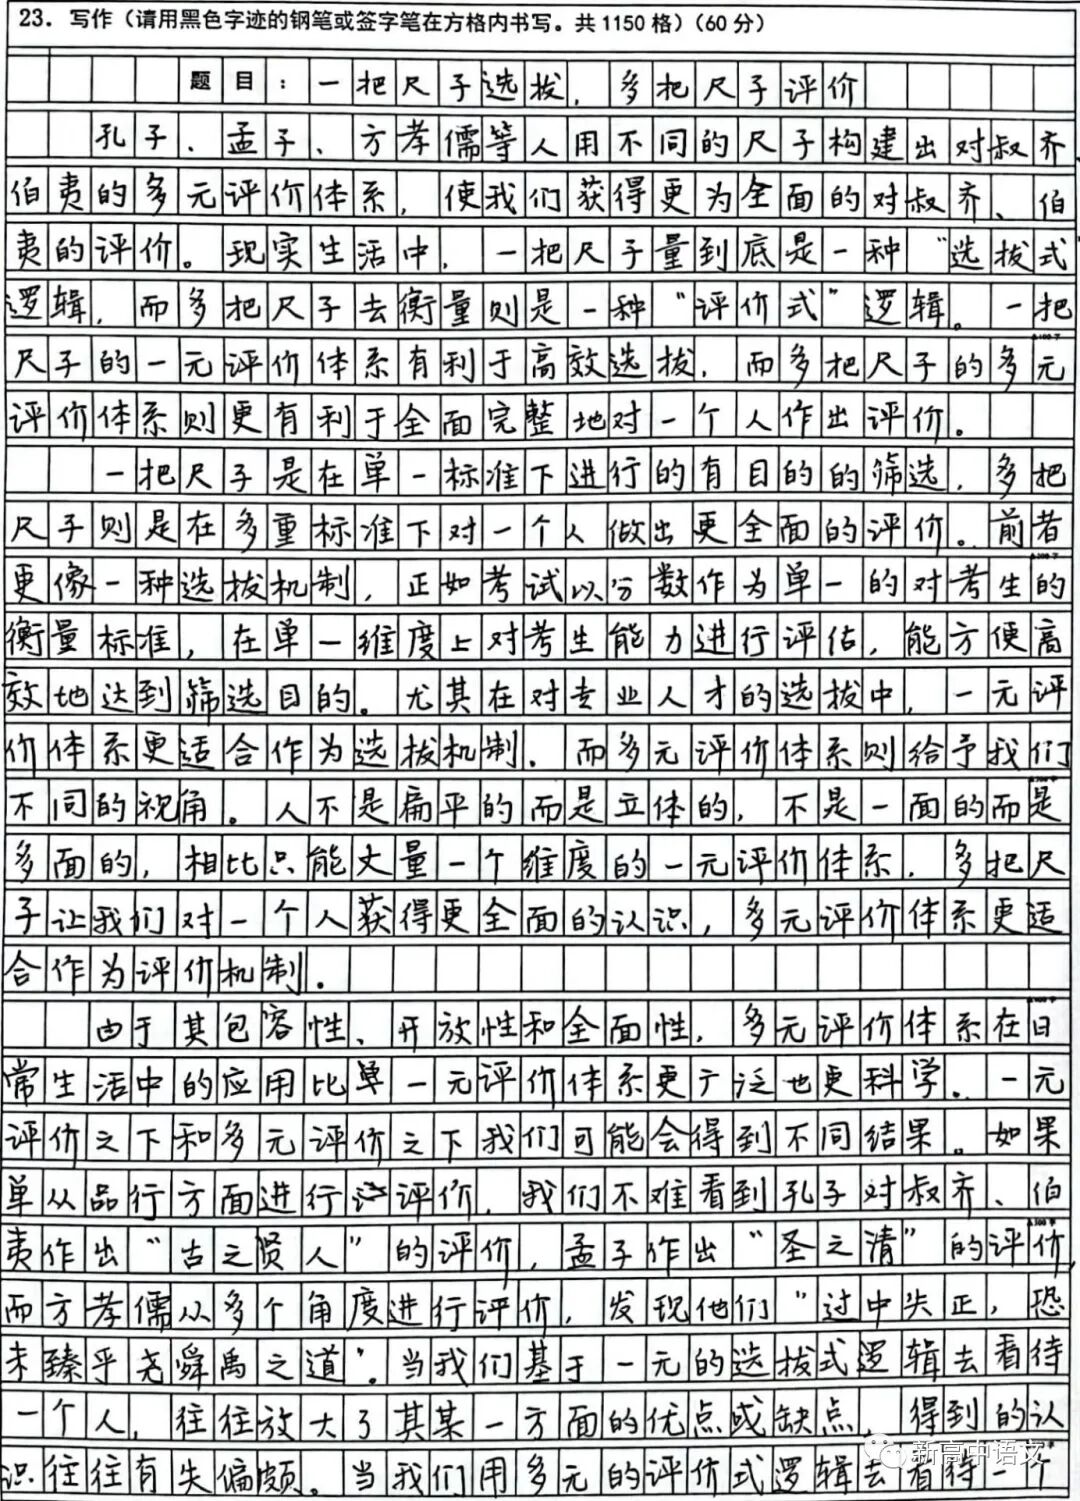 23. 写作（请用黑色字迹的钢笔或签字笔在方格内书写。共1150格）（60分）
题目：一把尺子选拔，多把尺子评价
孔子、孟子、方孝儒等人用不同的尺子构建出对叔齐、
伯夷的多元评价体系，使我们获得更为全面的对叔齐、伯
夷的评价。现实生活中，一把尺子量到底是一种“选拔式”
逻辑，而多把尺子去衡量则是一种“评价式”逻辑。一把
尺子的一元评价体系有利于高效选拔，而多把尺子的多元
评价体系则更有利于全面完整地对一个人作出评价。
一把尺子是在单一标准下进行的有目的的筛选，多把
尺子则是在多重标准下对一个人做出更全面的评价。前者
更像一种选拔机制，正如考试以分数作为单一的对考生的
衡量标准，在单一维度上对考生能力进行评估，能方便高
效地达到筛选目的。尤其在对专业人才的选拔中，一元评
价体系更适合作为选拔机制。而多元评价体系则给予我们
不同的视角。人不是扁平的而是立体的，不是一面的而是
多面的，相比只能丈量一个维度的一元评价体系，多把尺
子让我们对一个人获得更全面的认识，多元评价体系更适
合作为评价机制。
由于其包容性、开放性和全面性，多元评价体系在日
常生活中的应用比单一元评价体系更广泛也更科学。一元
评价之下和多元评价之下我们可能会得到不同结果。如果
单从品行方面进行评价，我们不难看到孔子对叔齐、伯
夷作出“古之贤人”的评价，孟子作出“圣之清”的评价，
而方孝儒从多个角度进行评价，发现他们“过中失正，恐
未臻乎尧舜禹之道”。当我们基于一元的选拔式逻辑去看待
一个人，往往放大了其某一方面的优点或缺点，得到的认
识往往有失偏颇。当我们用多元的评价式逻辑去看待一个
新高中语文